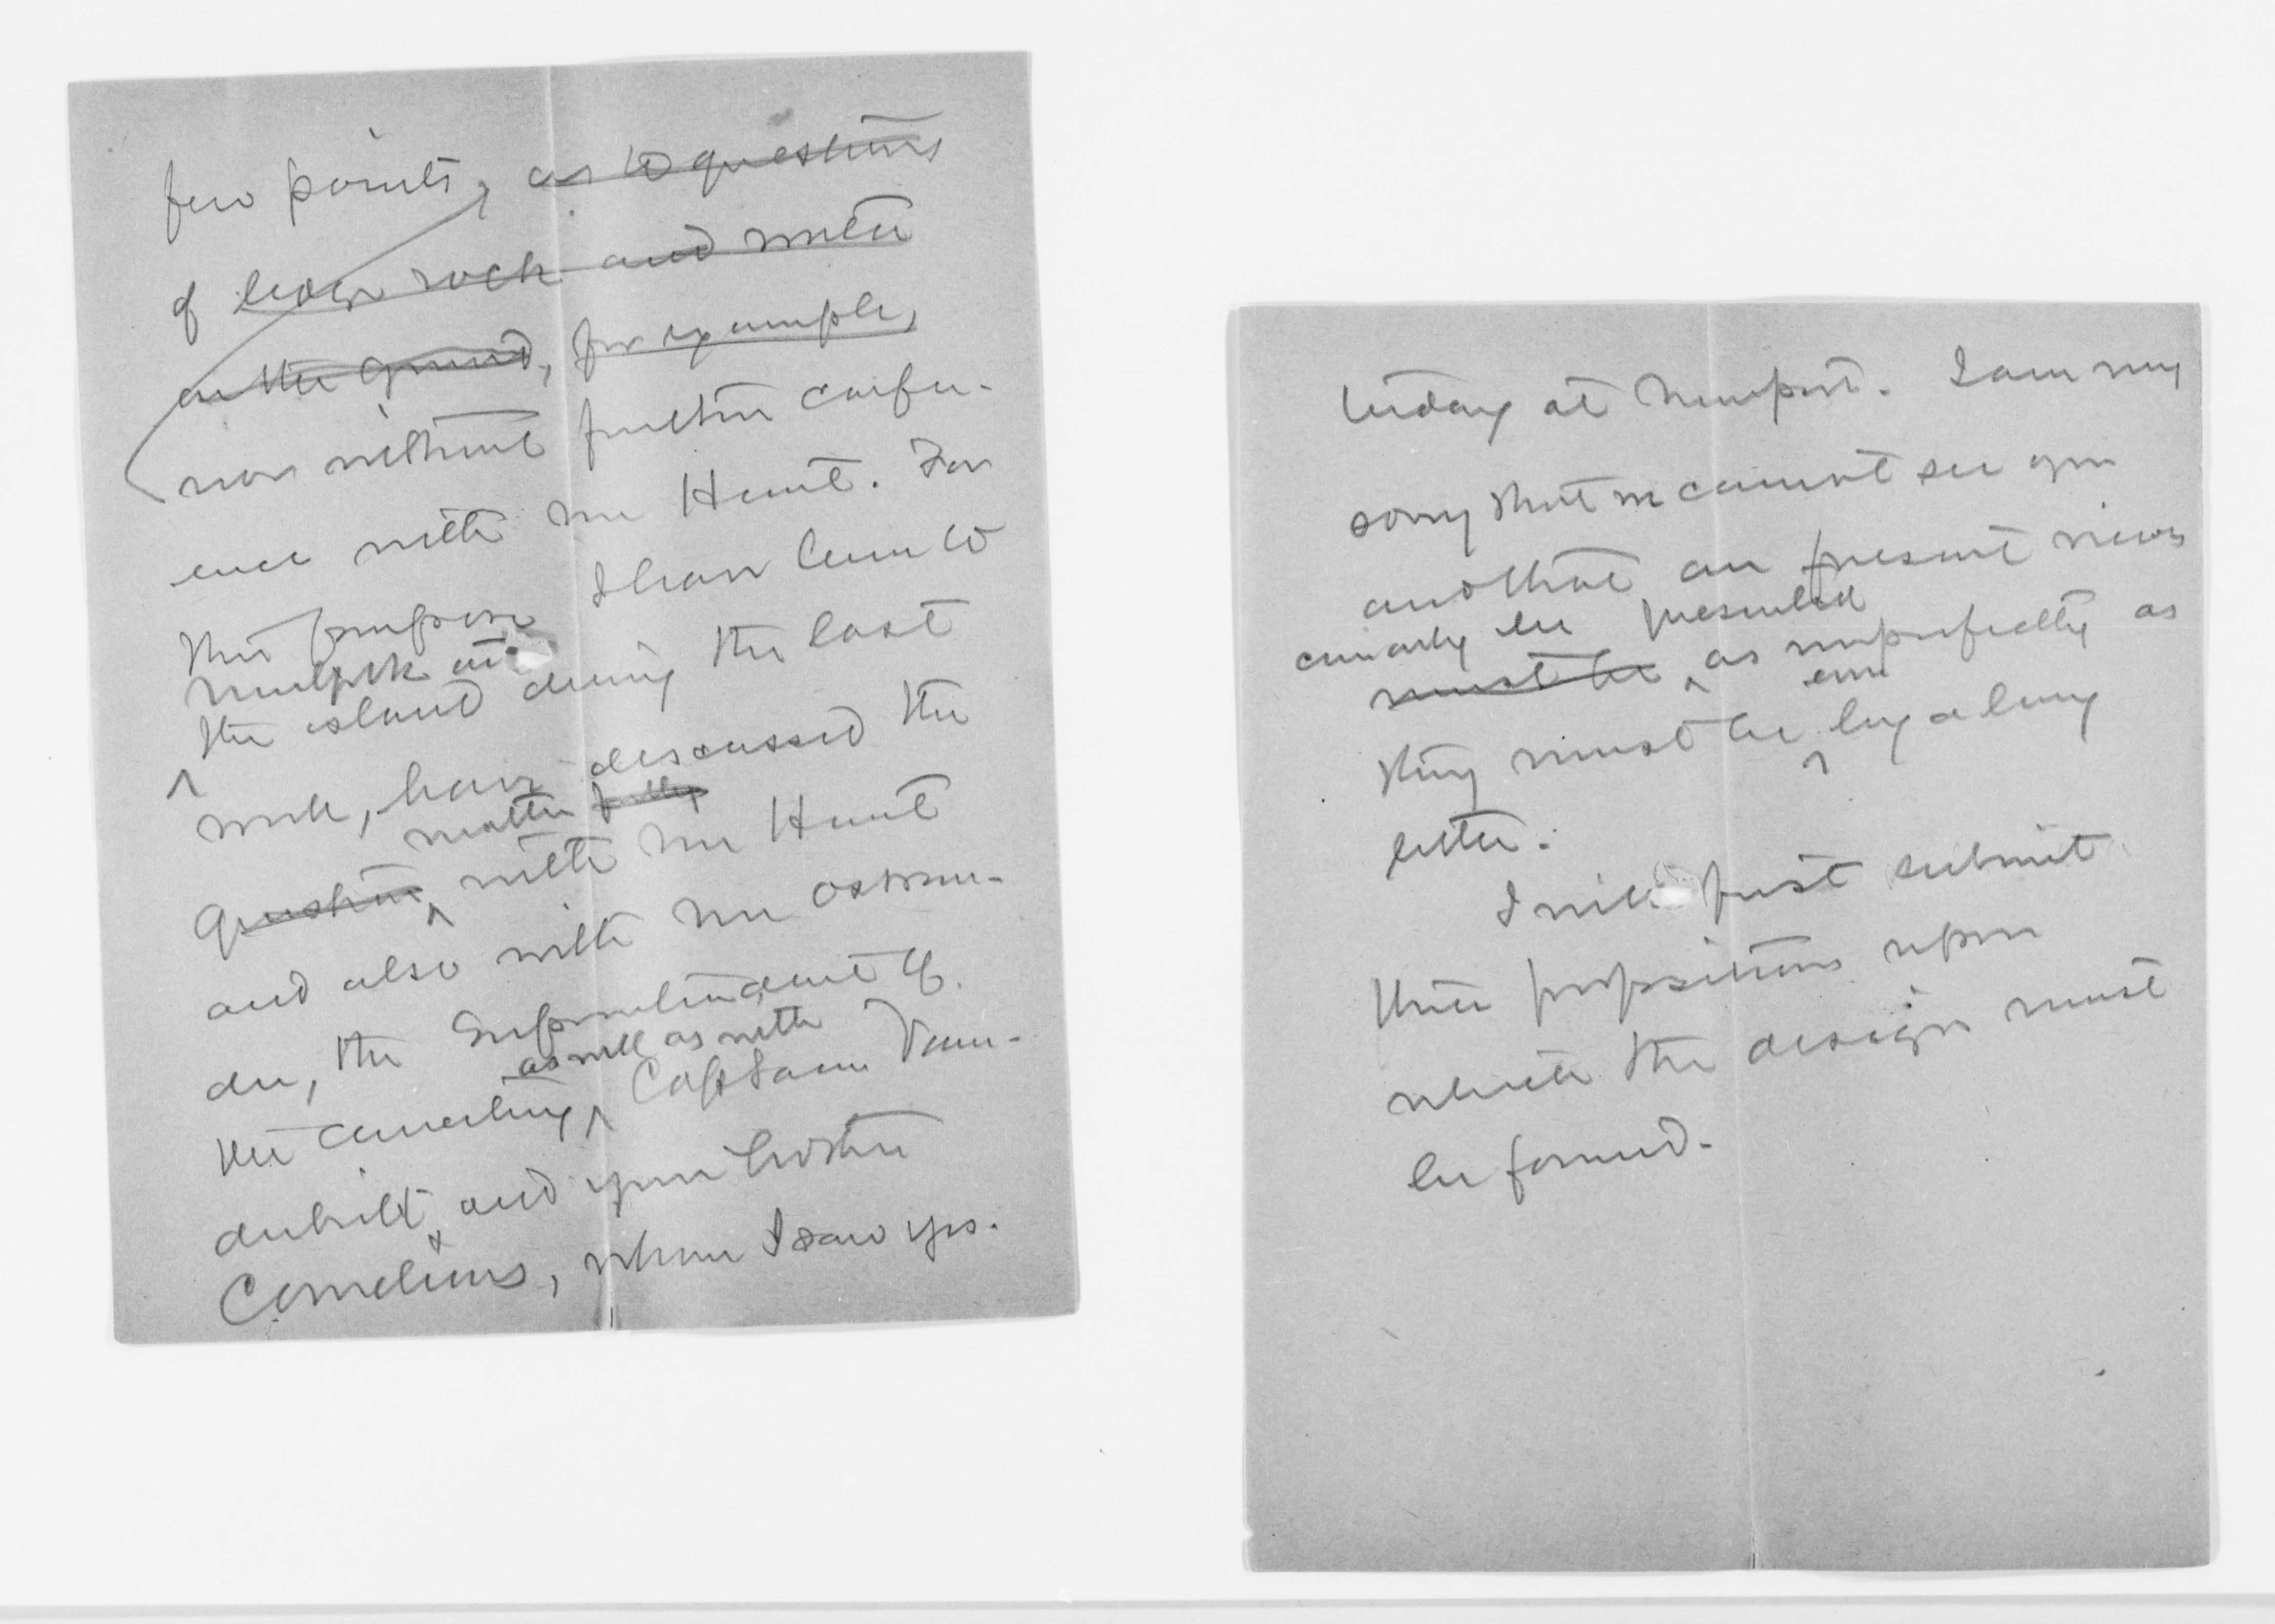 few points, as to questions
of ledge rock and water
on the ground, for example,
now without further confer-
ence with Mr Hunt. For
this purpose I have been to
the island during the last
week, have discussed the
matter fully
question with Mr Hunt
and also with Mr Ostran-
der, the Superintendent of
as well as with
the cemetery, Captain Van-
derbilt and your brother
Cornelius, whom I saw yes-
terday at Newport. I am very
sorry that we cannot see you
and that our present views
can only be presented
must be as imperfectly as
they must be by a long
letter.
I will first submit
three propositions upon
which the design must
be formed.